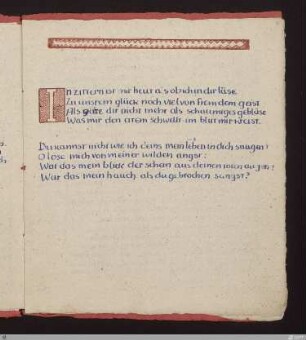 In zittern ist mir heut als ob ich in dir läse
Zu unsrem glück noch viel von fremdem geist
Als gälte dir nicht mehr als schaumiges gebläse
Was mir den atem schwellt im blut mir kreist.
Du kannst nicht wie ich dein mein leben in dich saugen!
O löse mich von meiner wilden angst:
War das mein blick der schien aus deinen augen?
War das mein hauch als du gebrochen sangst?